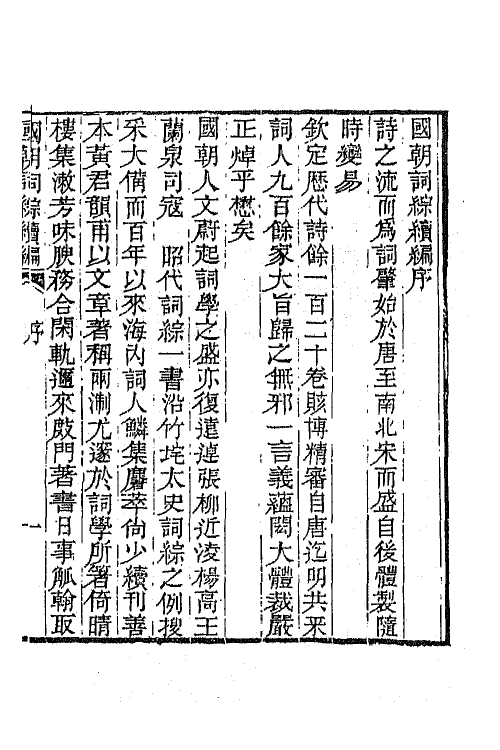 國朝詞綜續編序
詩之流而爲詞肇始於唐至南北宋而盛自後體製隨
時變易
欽定歴代詩餘一百二十卷賅博精審自唐迄明共采
詞人九百餘家大旨歸之無邪一言義蘊閎大體裁嚴
正焯乎懋矣
國朝人文蔚起詞學之盛亦復遠達張柳近淩楊高王
蘭泉司寇 昭代詞綜一書沿竹垞太史詞綜之例搜
采大備而百年以來海內詞人鱗集麕萃尙少續刊善
本黃君韻甫以文章著稱兩淛尤邃於詞學所著倚晴
樓集漱芳味腴務合閑軌邇來㪣門著書日事觚翰取
國朝詞綜續編 序 一